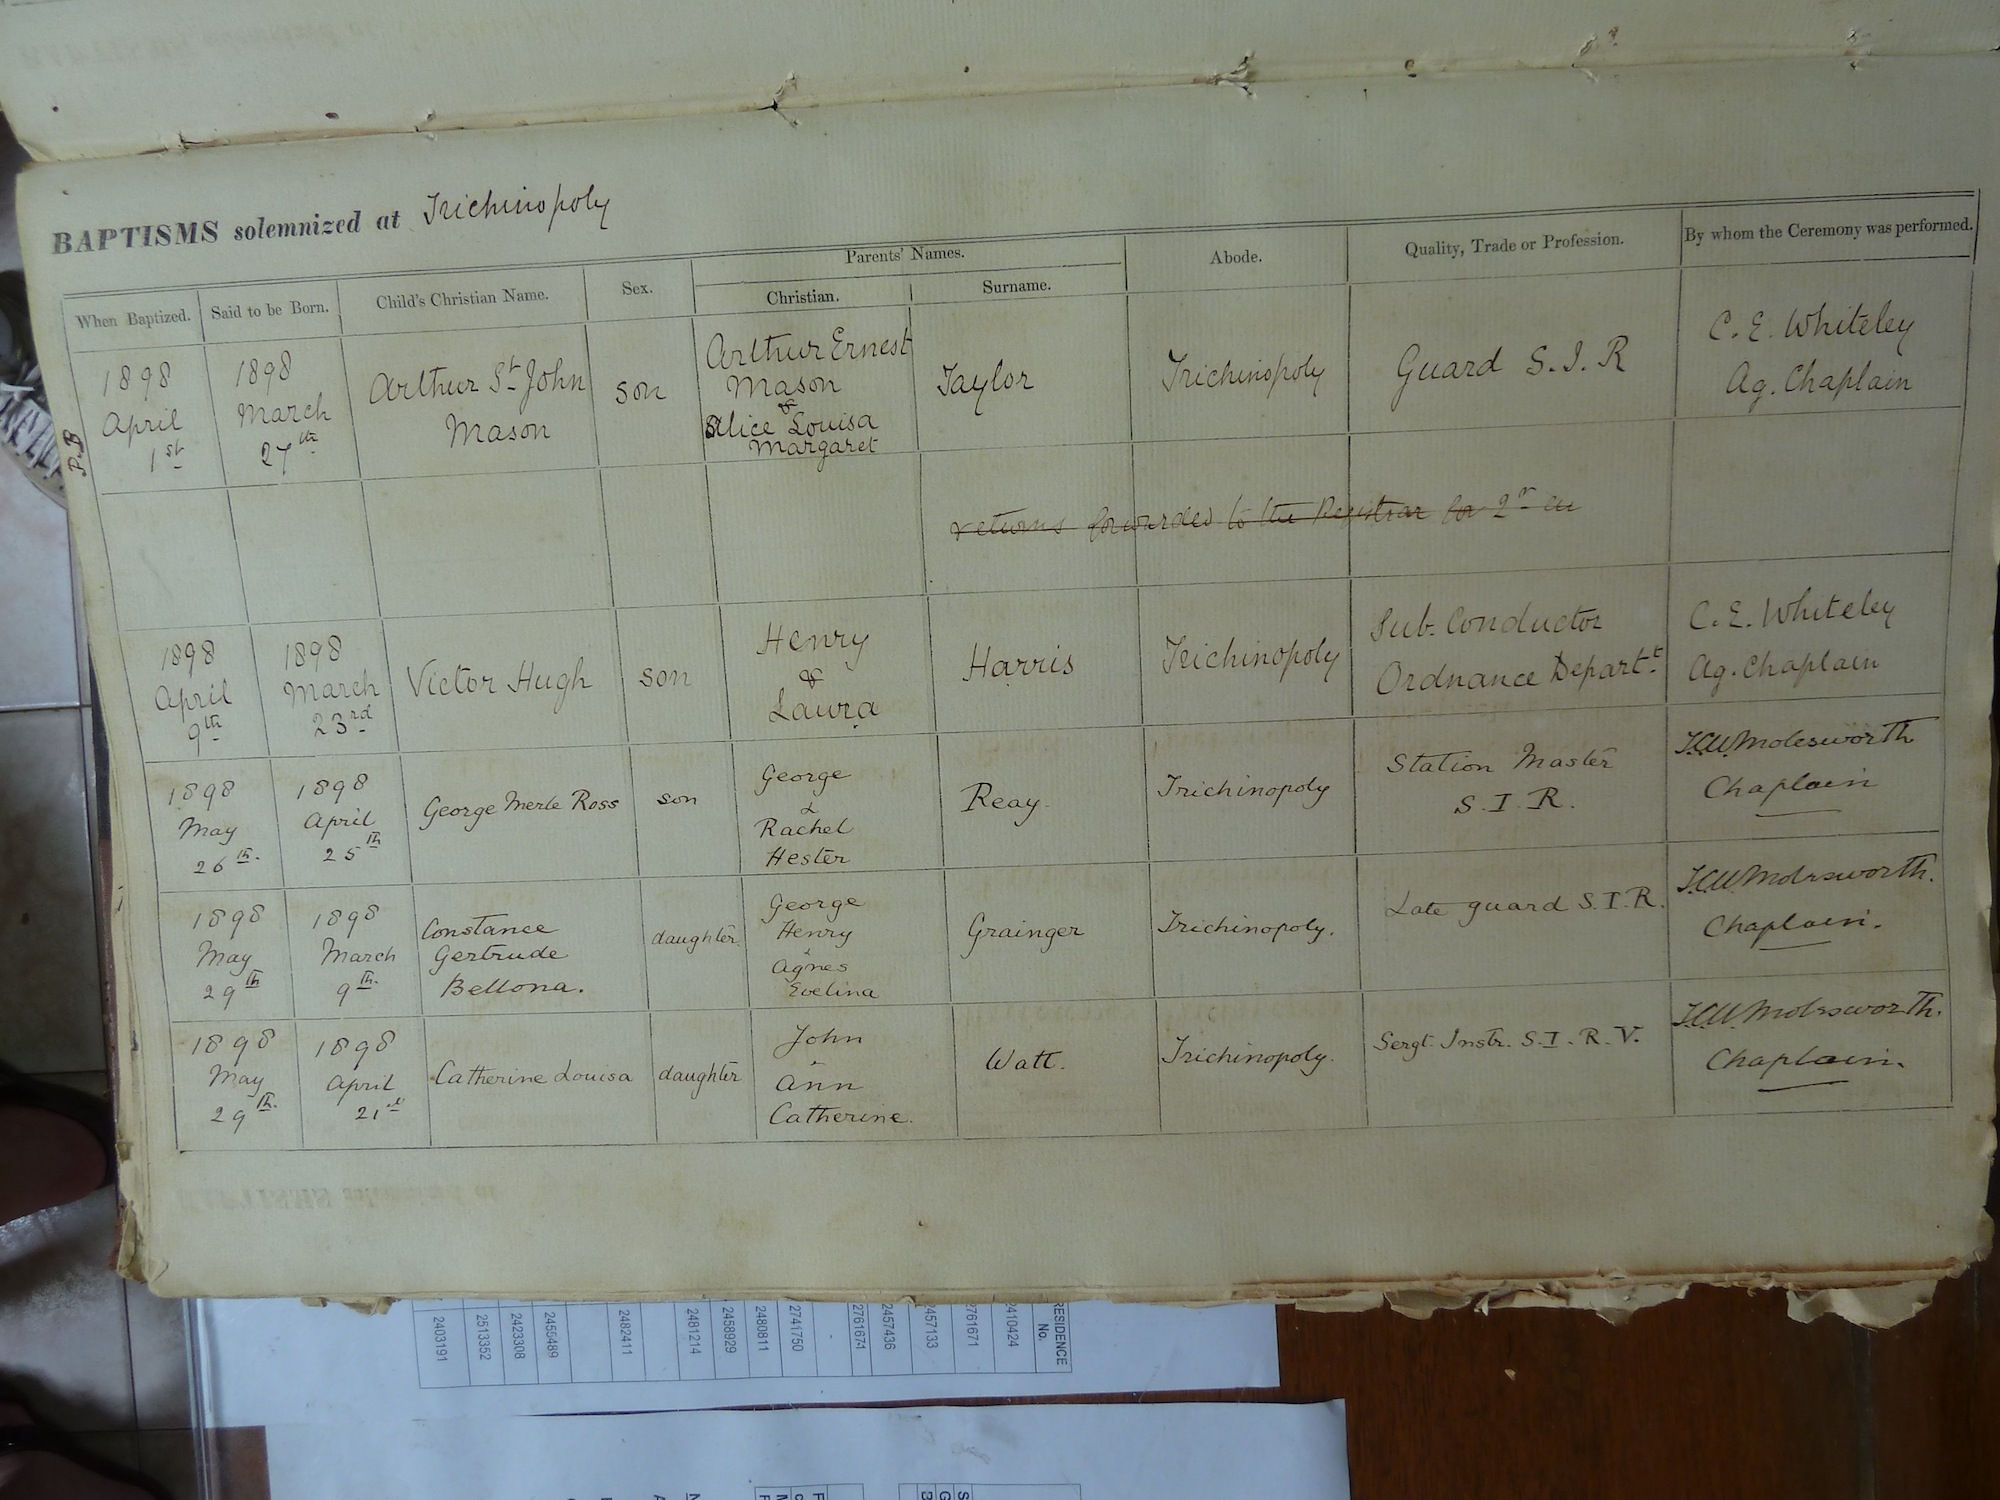 BAPTISMS solemnized at Trichinopoly
When Baptized. Said to be Born. Child's Christian Name. Sex. Parents' Names. Abode. Quality, Trade or Profession. By whom the Ceremony was performed.
Christian. Surname.
P.B
1898
April
1st
1898
March
27th
Arthur St John
Mason
son
Arthur Ernest
Mason
&
Alice Louisa
Margaret
Taylor
Trichinopoly
Guard S.I.R
C. E. Whiteley
Ag. Chaplain
returns forwarded to the Registrar for 2r
1898
April
9th
1898
March
23rd
Victor Hugh
son
Henry
&
Laura
Harris
Trichinopoly
Sub. Conductor
Ordnance Departt.
C. E. Whiteley
Ag. Chaplain
1898
May
26th.
1898
April
25th
George Merle Ross
son
George
&
Rachel
Hester
Reay
Trichinopoly
Station Master
S. I. R.
Molesworth
Chaplain
1898
May
29th
1898
March
9th.
Constance
Gertrude
Bellona.
daughter
George
Henry
Agnes
Evelina
Grainger
Trichinopoly.
Late guard S.I.R.
Molesworth.
Chaplain.
1898
May
29th.
1898
April
21st
Catherine Louisa
daughter
John
Ann
Catherine.
Watt.
Trichinopoly.
Sergt. Instr. S. I. R. V.
Molesworth.
Chaplain.
RESIDENCE
No.
2410424
2761671
2457133
2457436
2761671
2741750
2480811
2458929
2481214
2482411
2455489
2423308
2513352
2403191